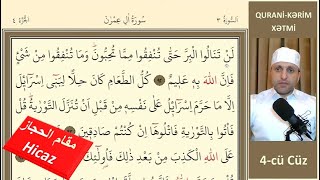 السورة ٣
سورة آل عمران
الجزء ٤
لَنْ تَنَالُوا الْبِرَّ حَتّٰى تُنْفِقُوا مِمَّا تُحِبُّونَ وَمَا تُنْفِقُوا مِنْ شَيْءٍ
فَإِنَّ اللّٰهَ بِهِ عَلِيمٌ ٩٢ كُلُّ الطَّعَامِ كَانَ حِلًّا لِبَنِي إِسْرَائِلَ
إِلَّا مَا حَرَّمَ إِسْرَائِلُ عَلٰى نَفْسِهِ مِنْ قَبْلِ أَنْ تُنَزَّلَ التَّوْرٰيةُ قُلْ
فَأْتُوا بِالتَّوْرٰيةِ فَاتْلُوهَا إِنْ كُنْتُمْ صَادِقِينَ
عَلَى اللّٰهِ الْكَذِبَ مِنْ بَعْدِ ذٰلِكَ فَأُولٰئِكَ
مقام الحجاز
Hicaz
QURANİ-KƏRİM
XƏTMİ
4-cü Cüz